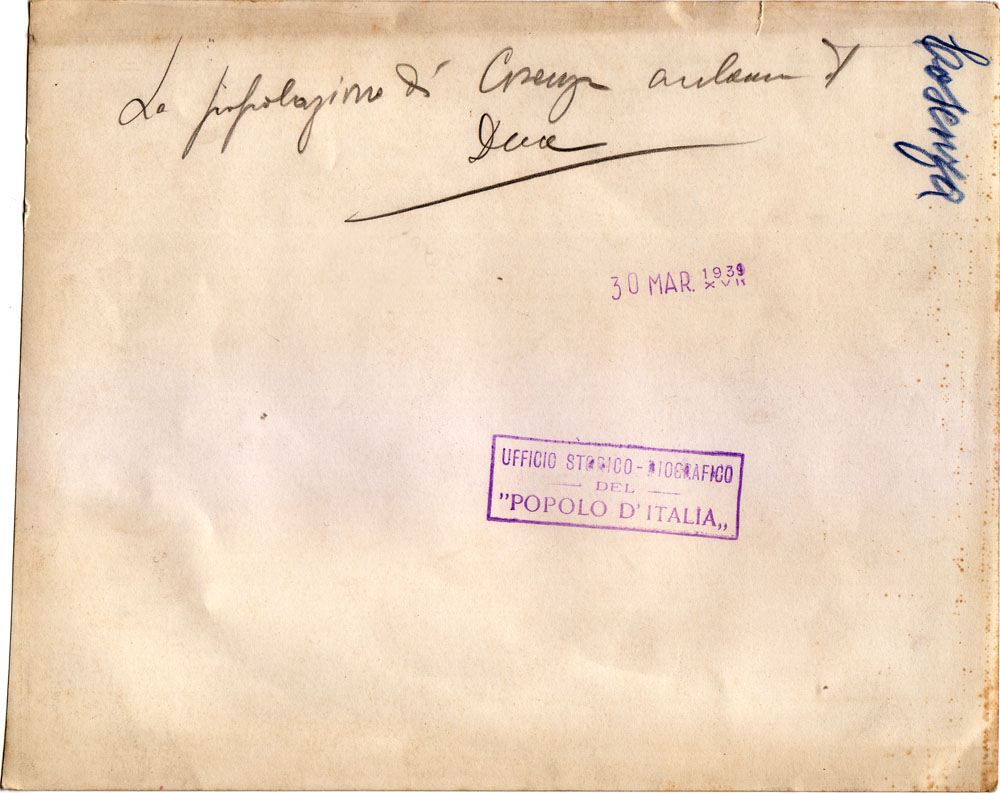 La popolazione di Cosenza acclama il
Duce
Cosenza
30 MAR. 1939
XVII
UFFICIO STORICO-BIOGRAFICO
DEL
"POPOLO D'ITALIA„